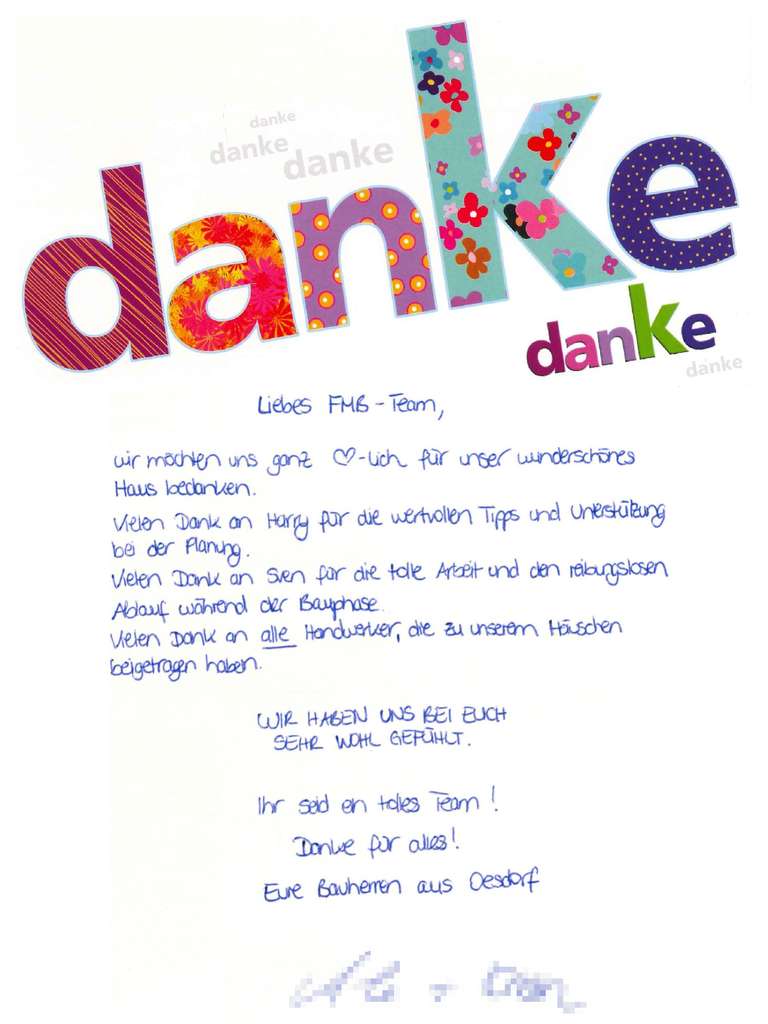 danke
danke
danke
danke
danke
danke
Liebes FMB-Team,
wir möchten uns ganz ♡-lich für unser wunderschönes
Haus bedanken.
Vielen Dank an Harry für die wertvollen Tipps und Unterstützung
bei der Planung.
Vielen Dank an Sven für die tolle Arbeit und den reibungslosen
Ablauf während der Bauphase.
Vielen Dank an alle Handwerker, die zu unserem Häuschen
beigetragen haben.
WIR HABEN UNS BEI EUCH
SEHR WOHL GEFÜHLT.
Ihr seid ein tolles Team!
Danke für alles!
Eure Bauherren aus Oesdorf